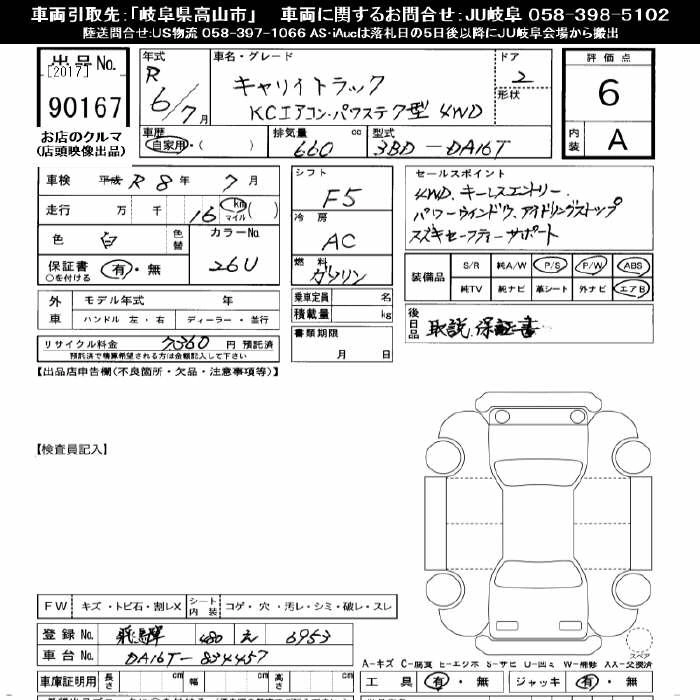 車両引取先:「岐阜県高山市」 車両に関するお問合せ:JU岐阜 058-398-5102
陸送問合せ:US物流 058-397-1066 AS・iAucは落札日の5日後以降にJU岐阜会場から搬出
出品No.
[2017]
90167
お店のクルマ
(店頭映像出品)
年式
R 6/7月
車名・グレード
キャリイトラック
KCエアコン・パワステ7型 4WD
ドア
2
形状
評価点
6
内装
A
車歴
自家用・( )
排気量 cc
660
型式
3BD-DA16T
車検 平成 R 8年 7月
走行 万 千 16 km マイル ( )
色 白
色替
カラーNo.
26U
保証書 有・無
○を付ける
シフト
F5
冷房
AC
燃料
ガソリン
乗車定員 名
積載量 kg
書類期限
月 日
セールスポイント
4WD. キーレスエントリー.
パワーウインドウ. アイドリングストップ
スズキセーフティーサポート
装備品
S/R 純A/W P/S P/W ABS
純TV 純ナビ 革シート 外ナビ エアB
後日品
取説. 保証書
外車
モデル年式 年
ハンドル 左・右 ディーラー・並行
リサイクル料金 円 預託済
預託済で精算希望される方は金額記入して下さい
【出品店申告欄(不良箇所・欠品・注意事項等)】
【検査員記入】
FW キズ・トビ石・割レX
シート内装 コゲ・穴・汚レ・シミ・破レ・スレ
登録No. 飛騨 480 え 6953
車台No. DA16T-834457
車庫証明用 長さ cm 幅 cm 高さ cm
スペア
A-キズ C-腐食 E-エクボ S-サビ U-凹ミ W-補修 XX-交換済
工具 有・無 ジャッキ 有・無